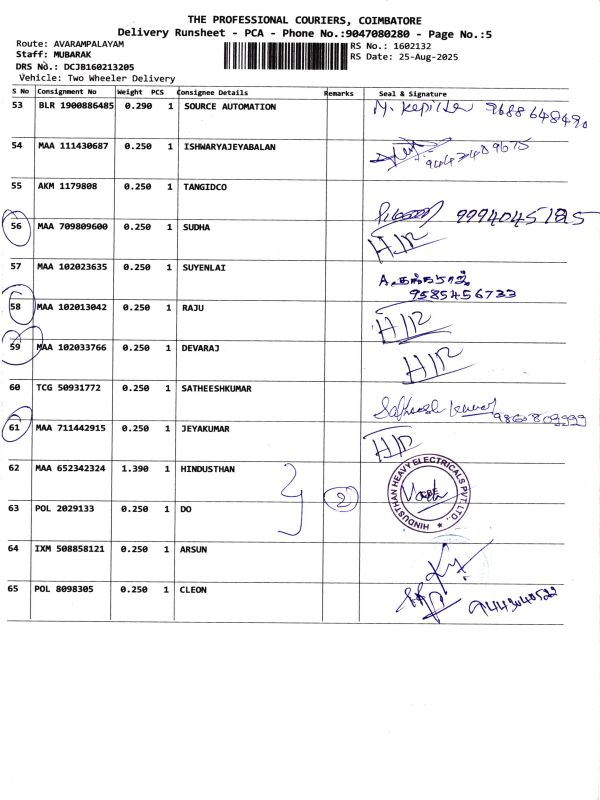 THE PROFESSIONAL COURIERS, COIMBATORE
Delivery Runsheet - PCA - Phone No.:9047080280 - Page No.:5
Route: AVARAMPALAYAM
Staff: MUBARAK
DRS No.: DCJB160213205
Vehicle: Two Wheeler Delivery
RS No.: 1602132
RS Date: 25-Aug-2025
S No Consignment No Weight PCS Consignee Details Remarks Seal & Signature
53 BLR 1900886485 0.290 1 SOURCE AUTOMATION
54 MAA 111430687 0.250 1 ISHWARYAJEYABALAN
55 AKM 1179808 0.250 1 TANGIDCO 9994045125
56 MAA 709809600 0.250 1 SUDHA H/R
57 MAA 102023635 0.250 1 SUYENLAI 9585456733
58 MAA 102013042 0.250 1 RAJU H/R
59 MAA 102033766 0.250 1 DEVARAJ H/R
60 TCG 50931772 0.250 1 SATHEESHKUMAR
61 MAA 711442915 0.250 1 JEYAKUMAR H/R
62 MAA 652342324 1.390 1 HINDUSTHAN
2
HINDUSTHAN HEAVY ELECTRICALS PVT. LTD.
63 POL 2029133 0.250 1 DO
64 IXM 508858121 0.250 1 ARSUN
65 POL 8098305 0.250 1 CLEON